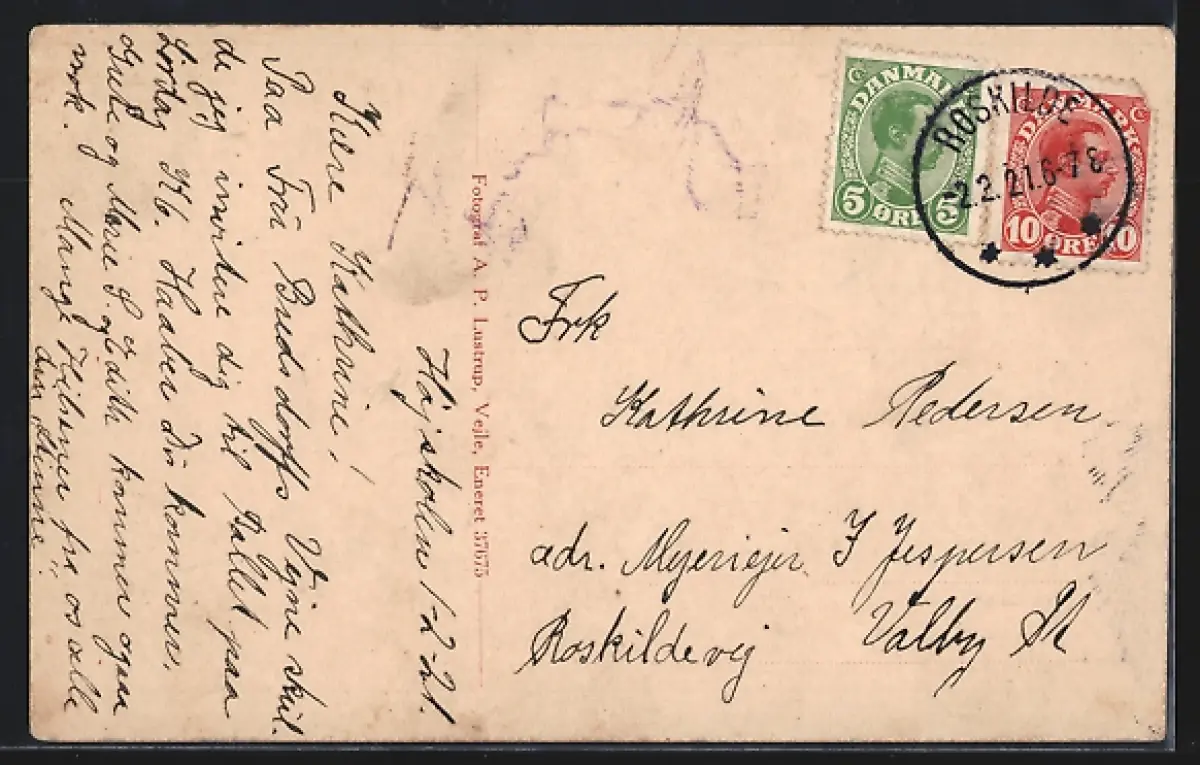 Højskolen 1-2-21.
Kære Kathrine!
Paa Fru Bredsdorffs Vegne skul-
de jeg invitere dig til Ballet paa
Lørdag Kl 6. Haaber du kommer,
og Marie S. og Edith kommer ogsaa
nok. Mange Hilsner fra os alle
din Stinne.
Fotograf A. P. Lustrup, Vejle, Eneret 37675
DANMARK
5 ØRE 5
DANMARK
10 ØRE 10
ROSKILDE
-2.2.21.6-7 E.
Frk
Kathrine Pedersen
adr. Mejeriejer J Jespersen
Roskildevej Valby St